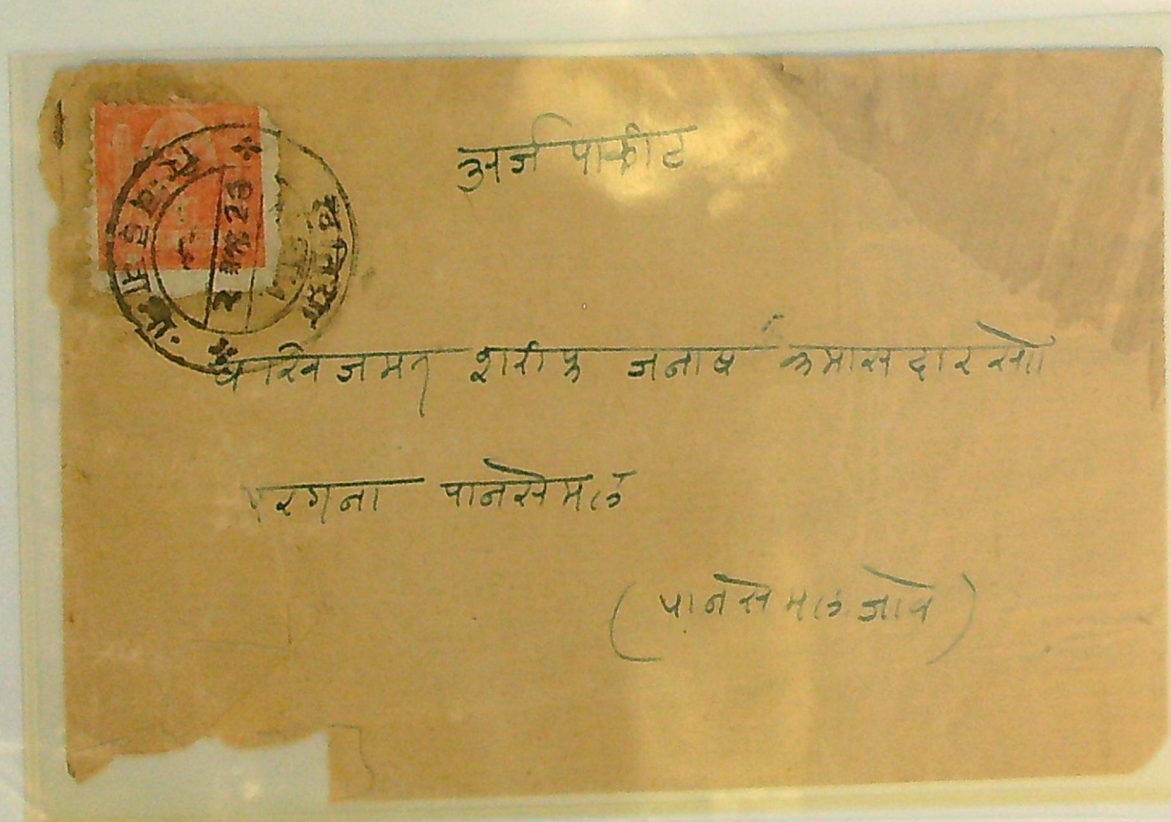 अर्ज पाकीट
बाखिजमत शरीफ जनाब कमासदार सो
परगना पानसेमल
(पानसेमल जावे)